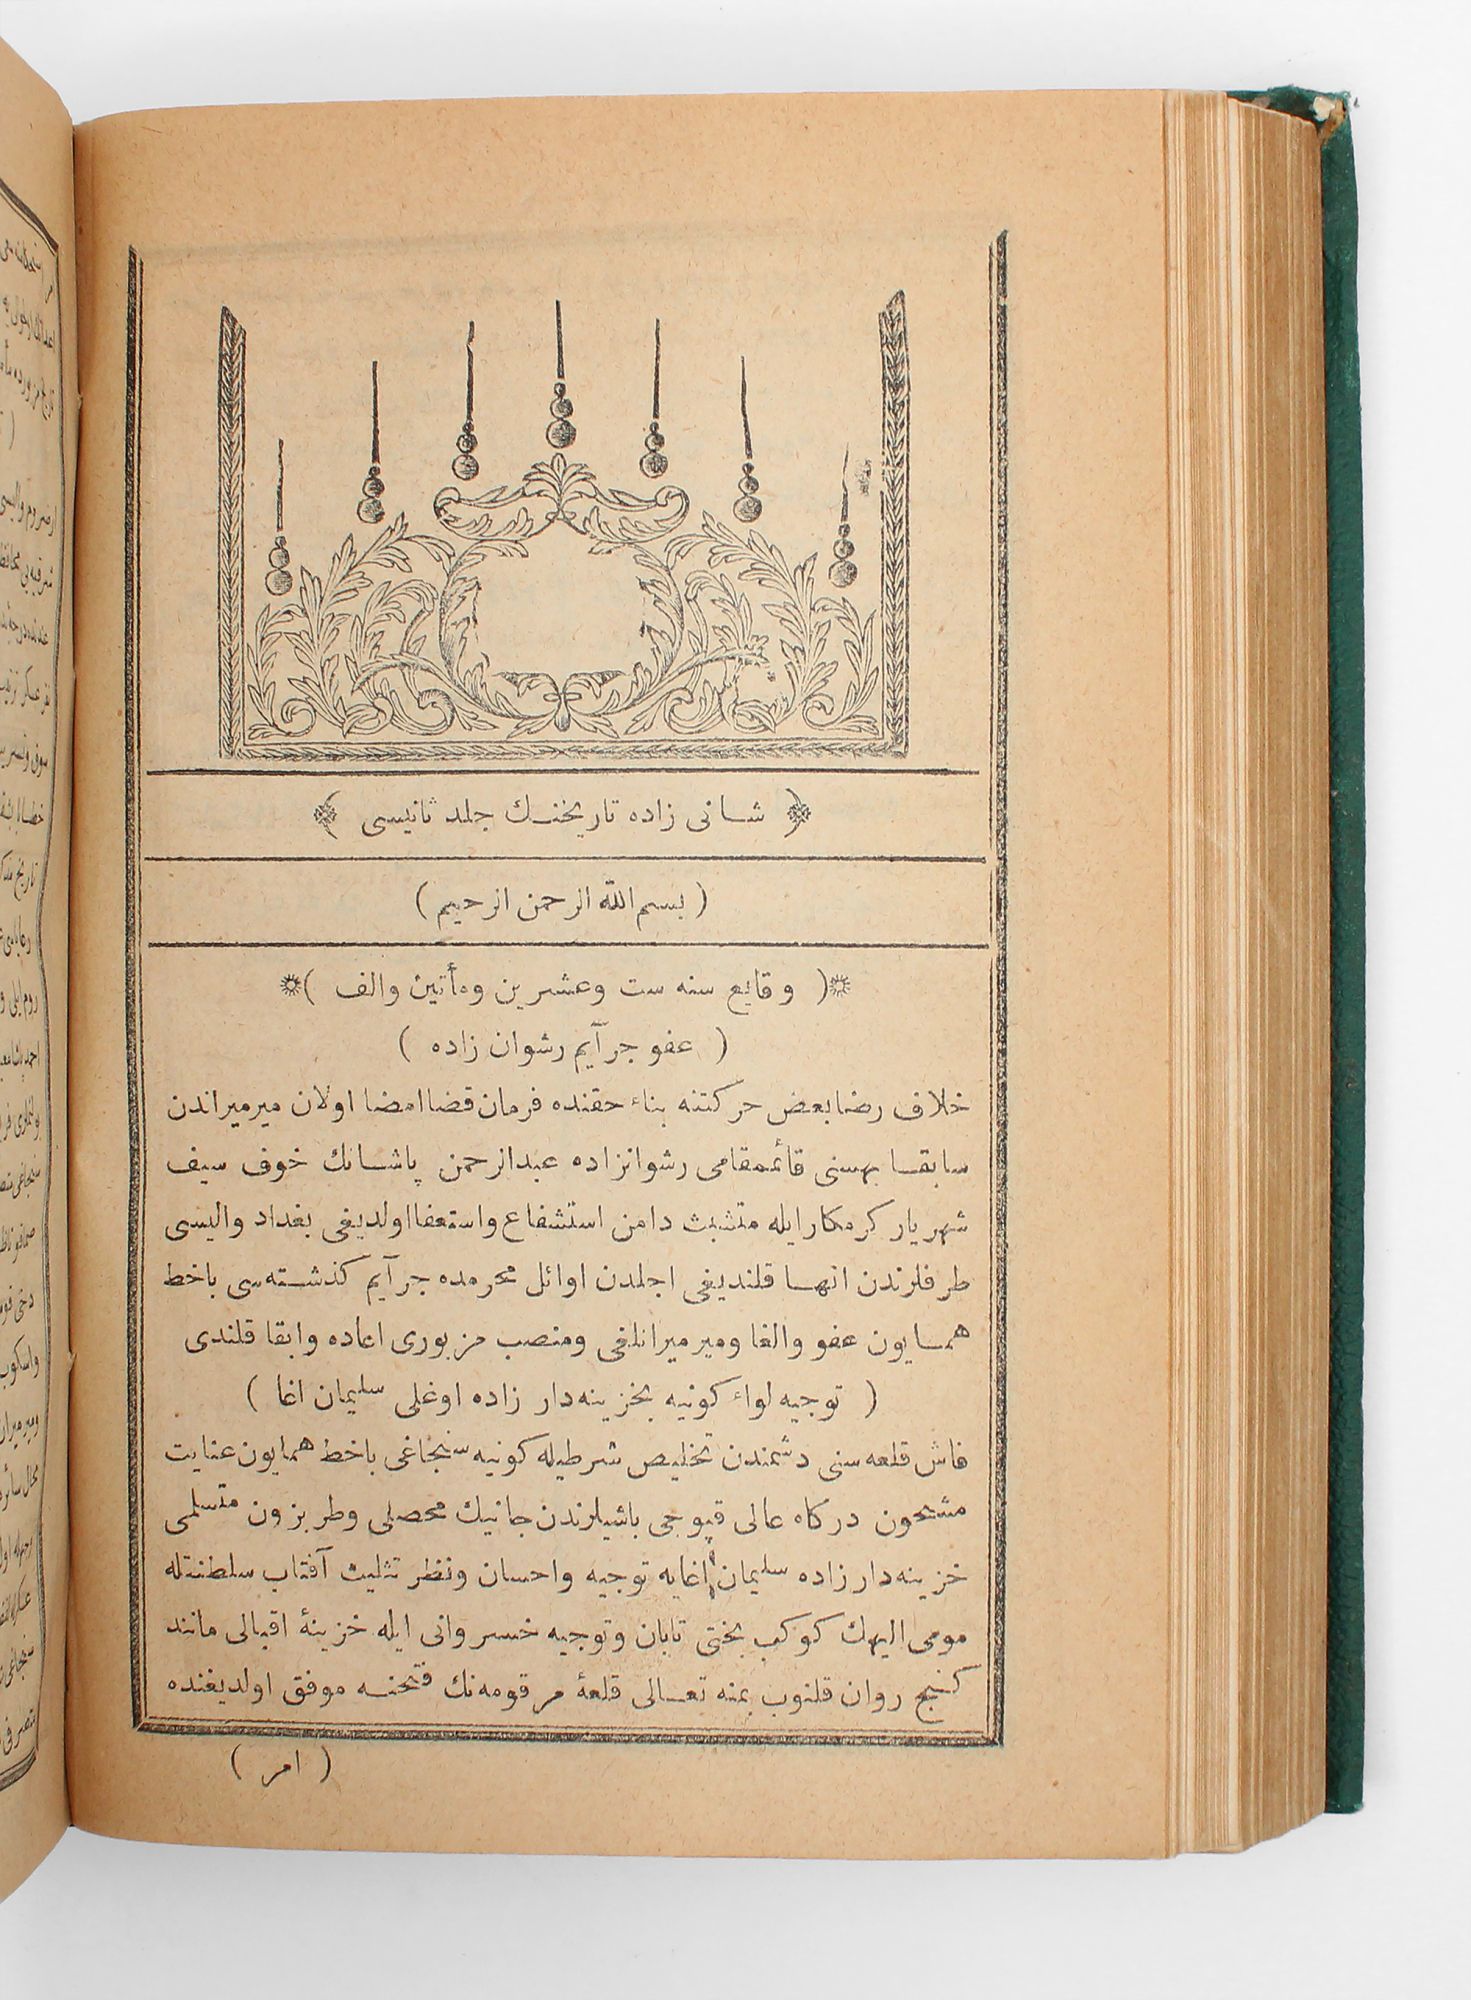 شانی زاده تاریخنك جلد ثانیسی
( بسم الله الرحمن الرحیم )
( وقایع سنه ست وعشرین ومأتین والف )
( عفو جرآیم رشوان زاده )
خلاف رضا بعض حرکتنه بناء حقنده فرمان قضا امضا اولان میرمیراندن
سابقا بهسنی قائمقامی رشوانزاده عبدالرحمن پاشانك خوف سیف
شهریار کرمکار ایله متشبث دامن استشفاع واستعفا اولدیغی بغداد والیسی
طرفلرندن انها قلندیغی اجلدن اوائل محرمده جرآیم کذشته سی باخط
همایون عفو والغا ومیرمیرانلغی ومنصب مزبوری اعاده وابقا قلندی
( توجیه لواء کونیه بخزینه دار زاده اوغلی سلیمان اغا )
فاش قلعه سنی دشمندن تخلیص شرطیله کونیه سنجاغی باخط همایون عنایت
مشحون درکاه عالی قپوجی باشیلرندن جانیك محصلی وطربزون متسلمی
خزینه دار زاده سلیمان اغایه توجیه واحسان ونظر تثلیث آفتاب سلطنتله
مومی الیهك کوکب بختی تابان وتوجیه خسروانی ایله خزینۀ اقبالی مانند
کنج روان قلنوب بمنه تعالی قلعۀ مرقومه نك فتحنه موفق اولدیغنده
( امر )